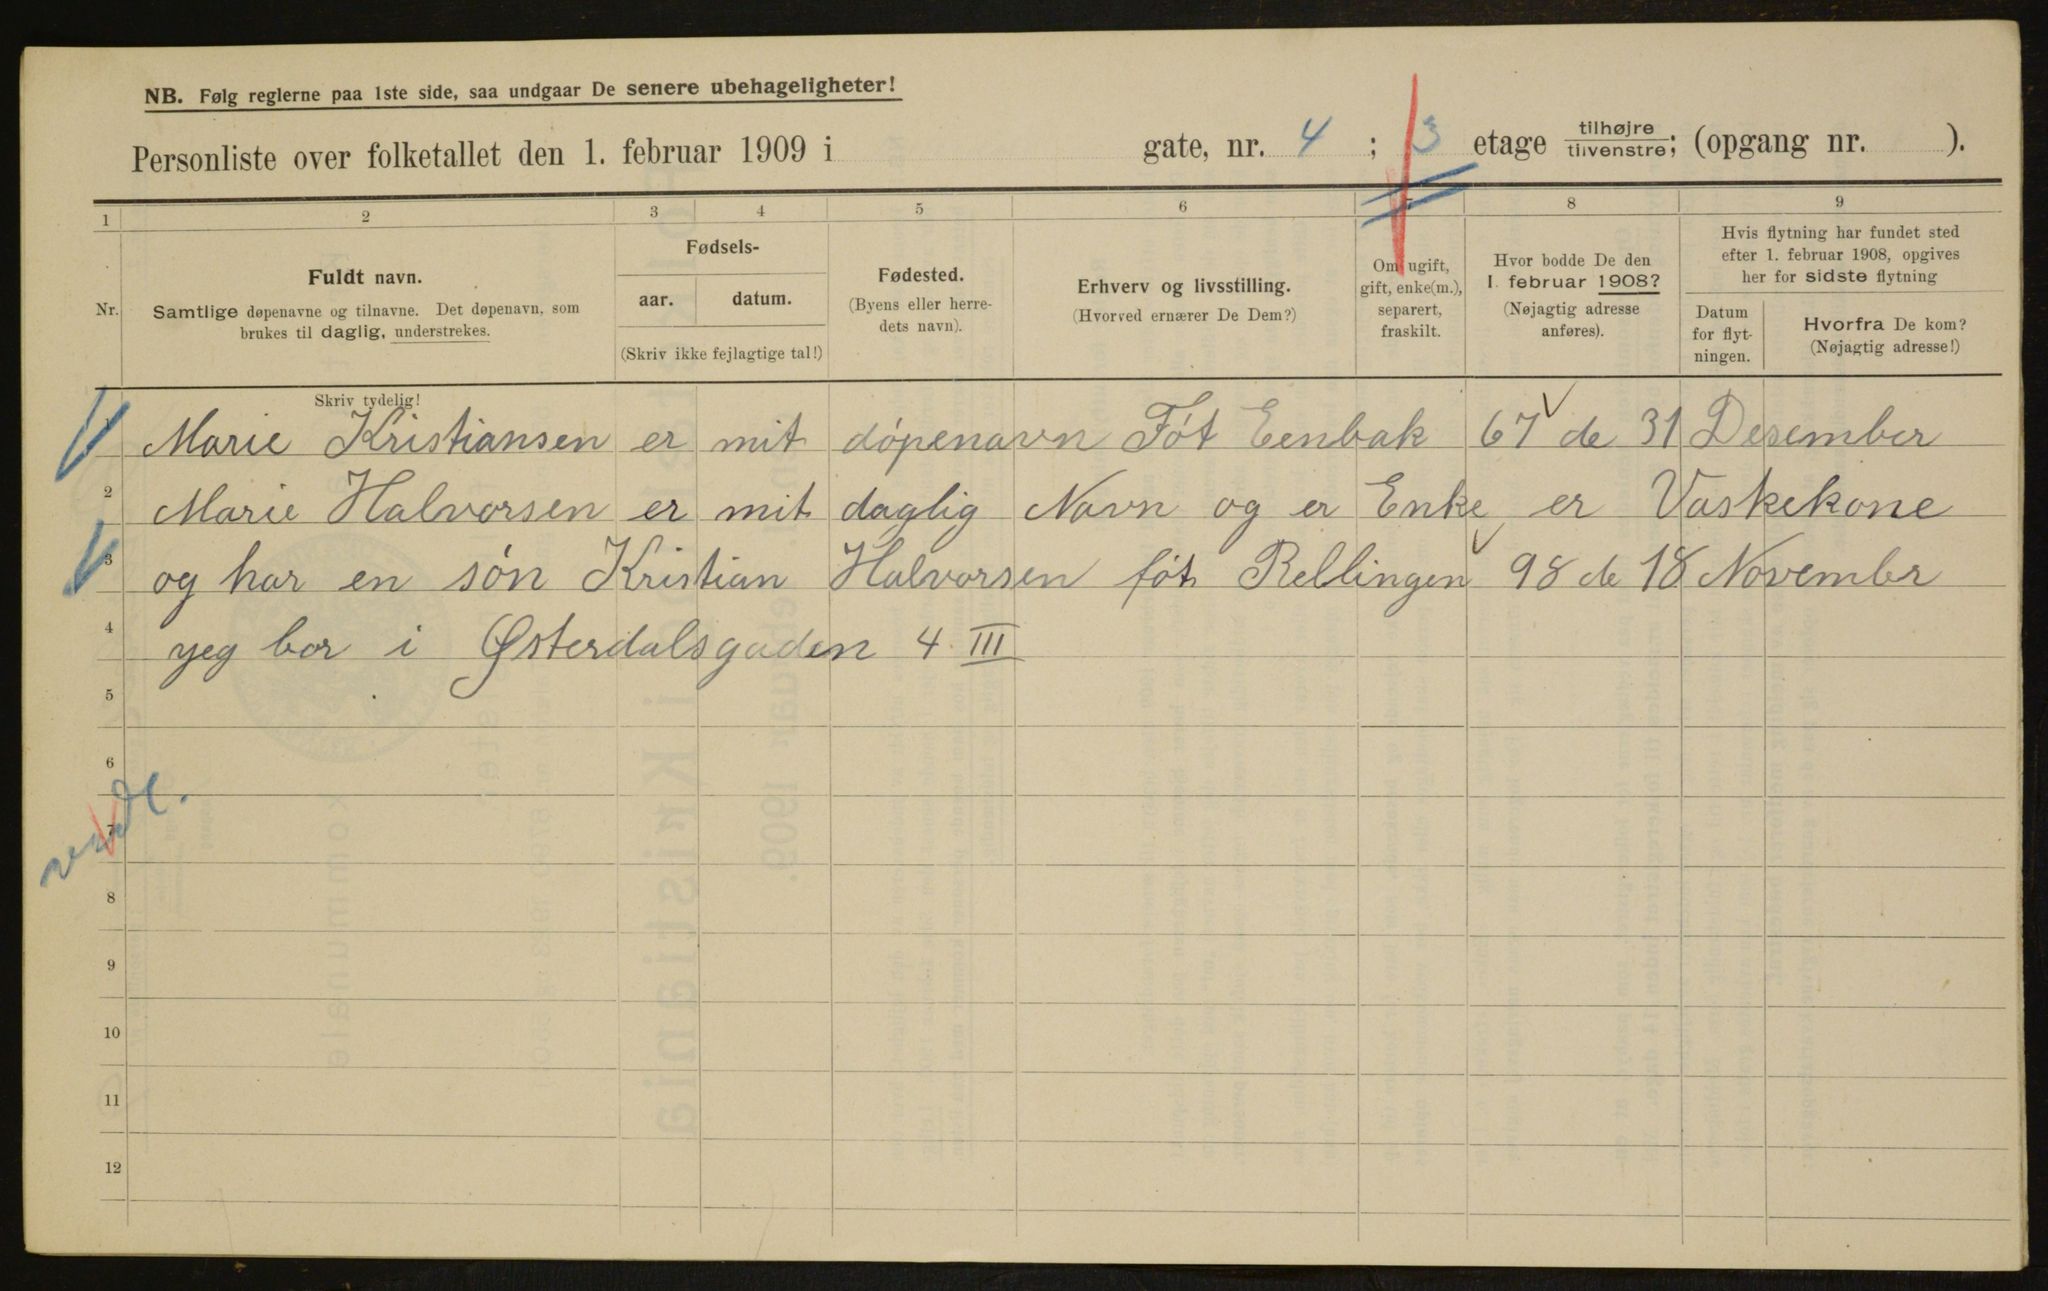 NB. Følg reglerne paa 1ste side, saa undgaar De senere ubehageligheter!
Personliste over folketallet den 1. februar 1909 i gate, nr. 4 ; 3 etage tilhøjre tilvenstre; (opgang nr. ).
1 2 3 4 5 6 7 8 9
Nr.
Fuldt navn.
Samtlige døpenavne og tilnavne. Det døpenavn, som
brukes til daglig, understrekes.
Fødsels-
aar. datum.
(Skriv ikke fejlagtige tal!)
Fødested.
(Byens eller herre-
dets navn).
Erhverv og livsstilling.
(Hvorved ernærer De Dem?)
Om ugift,
gift, enke(m.),
separert,
fraskilt.
Hvor bodde De den
1. februar 1908?
(Nøjagtig adresse
anføres).
Hvis flytning har fundet sted
efter 1. februar 1908, opgives
her for sidste flytning
Datum
for flyt-
ningen.
Hvorfra De kom?
(Nøjagtig adresse!)
Skriv tydelig!
Marie Kristiansen er mit døpenavn Føt Eenbak 67 de 31 Desember
2 Marie Halvorsen er mit daglig Navn og er Enke er Vaskekone
3 og har en søn Kristian Halvorsen føt Rellingen 98 de 18 Novembr
4 yeg bor i Østerdalsgaden 4 III
5
6
7
8
9
10
11
12